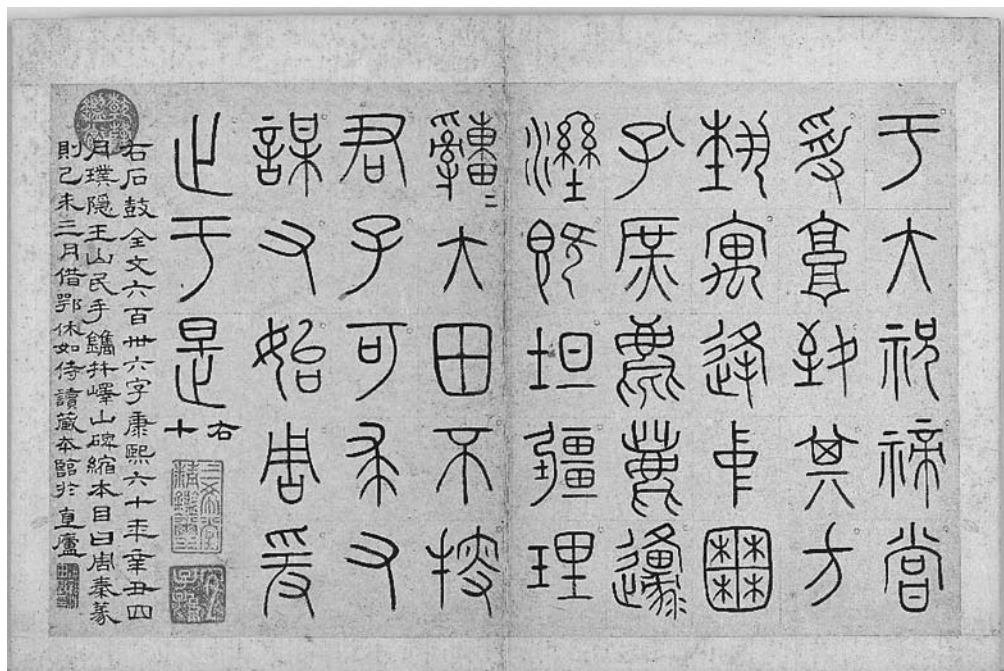 于大祝禘嘗
受享致其方
埶寓逢中囿
孔庶麀鹿邍
溼既坦疆理
大田不搜
君子可求又
謀又始周爰
止于是
右十
右石鼓全文六百卅六字康熙六十年辛丑四
月璞隱王山民手鐫并嶧山碑縮本目曰周秦篆
則己未三月借鄂休如侍讀藏本臨於直廬